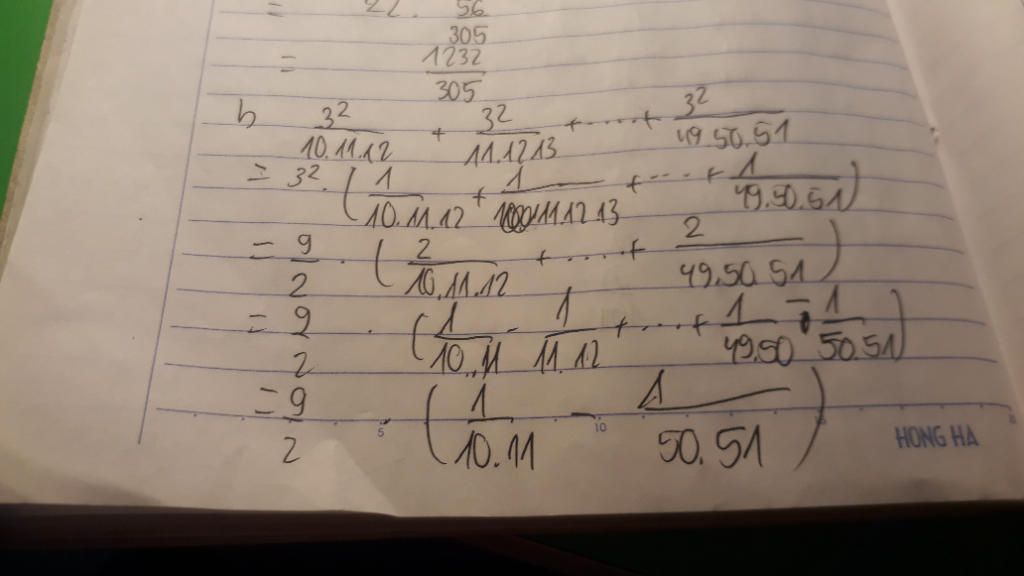 = 22. 56
305
= 1232
305
b 3² + 3² +....+ 3²
10.11.12 11.12 13 49.50.51
= 3². ( 1 + 1 +...+ 1 )
10.11.12 11.12 13 49.50.51
= 9 . ( 2 +....+ 2 )
2 10.11.12 49.50 51
= 9 . ( 1 - 1 +....+ 1 - 1 )
2 10.11 11.12 49.50 50.51
= 9 . ( 1 - 1 )
2 10.11 50.51
5 10
HONG HA